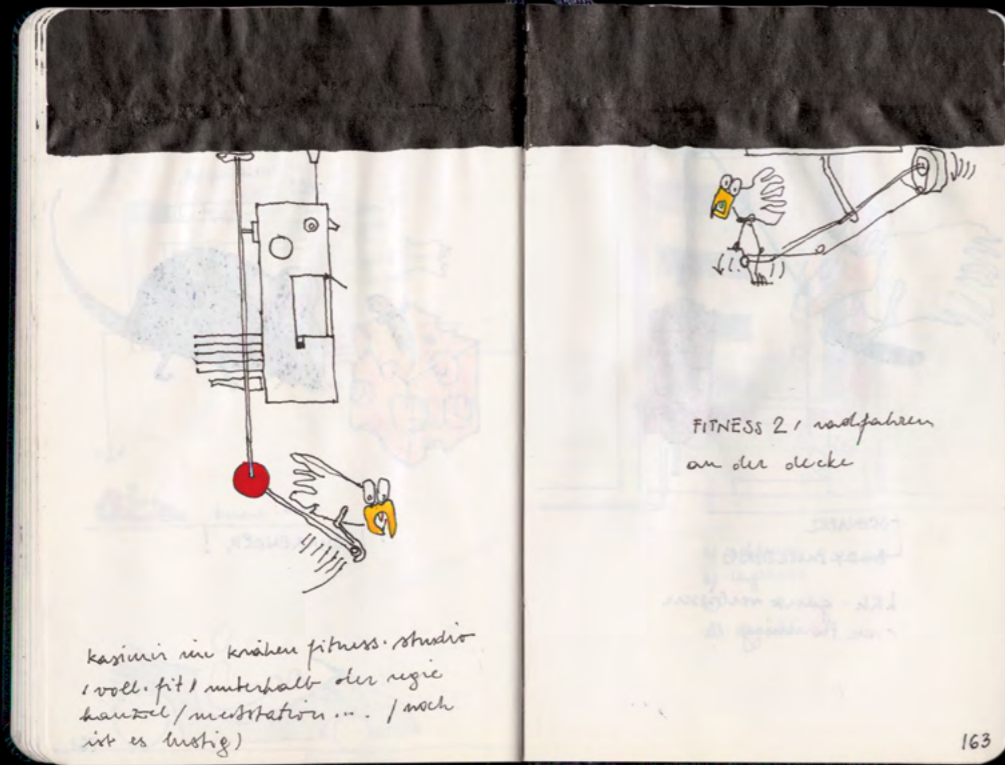 kasimir im krähen fitness-studio
(voll-fit) unterhalb der regie
kanzel/messtation... (noch
ist es lustig)
FITNESS 2, radfahren
an der decke
163